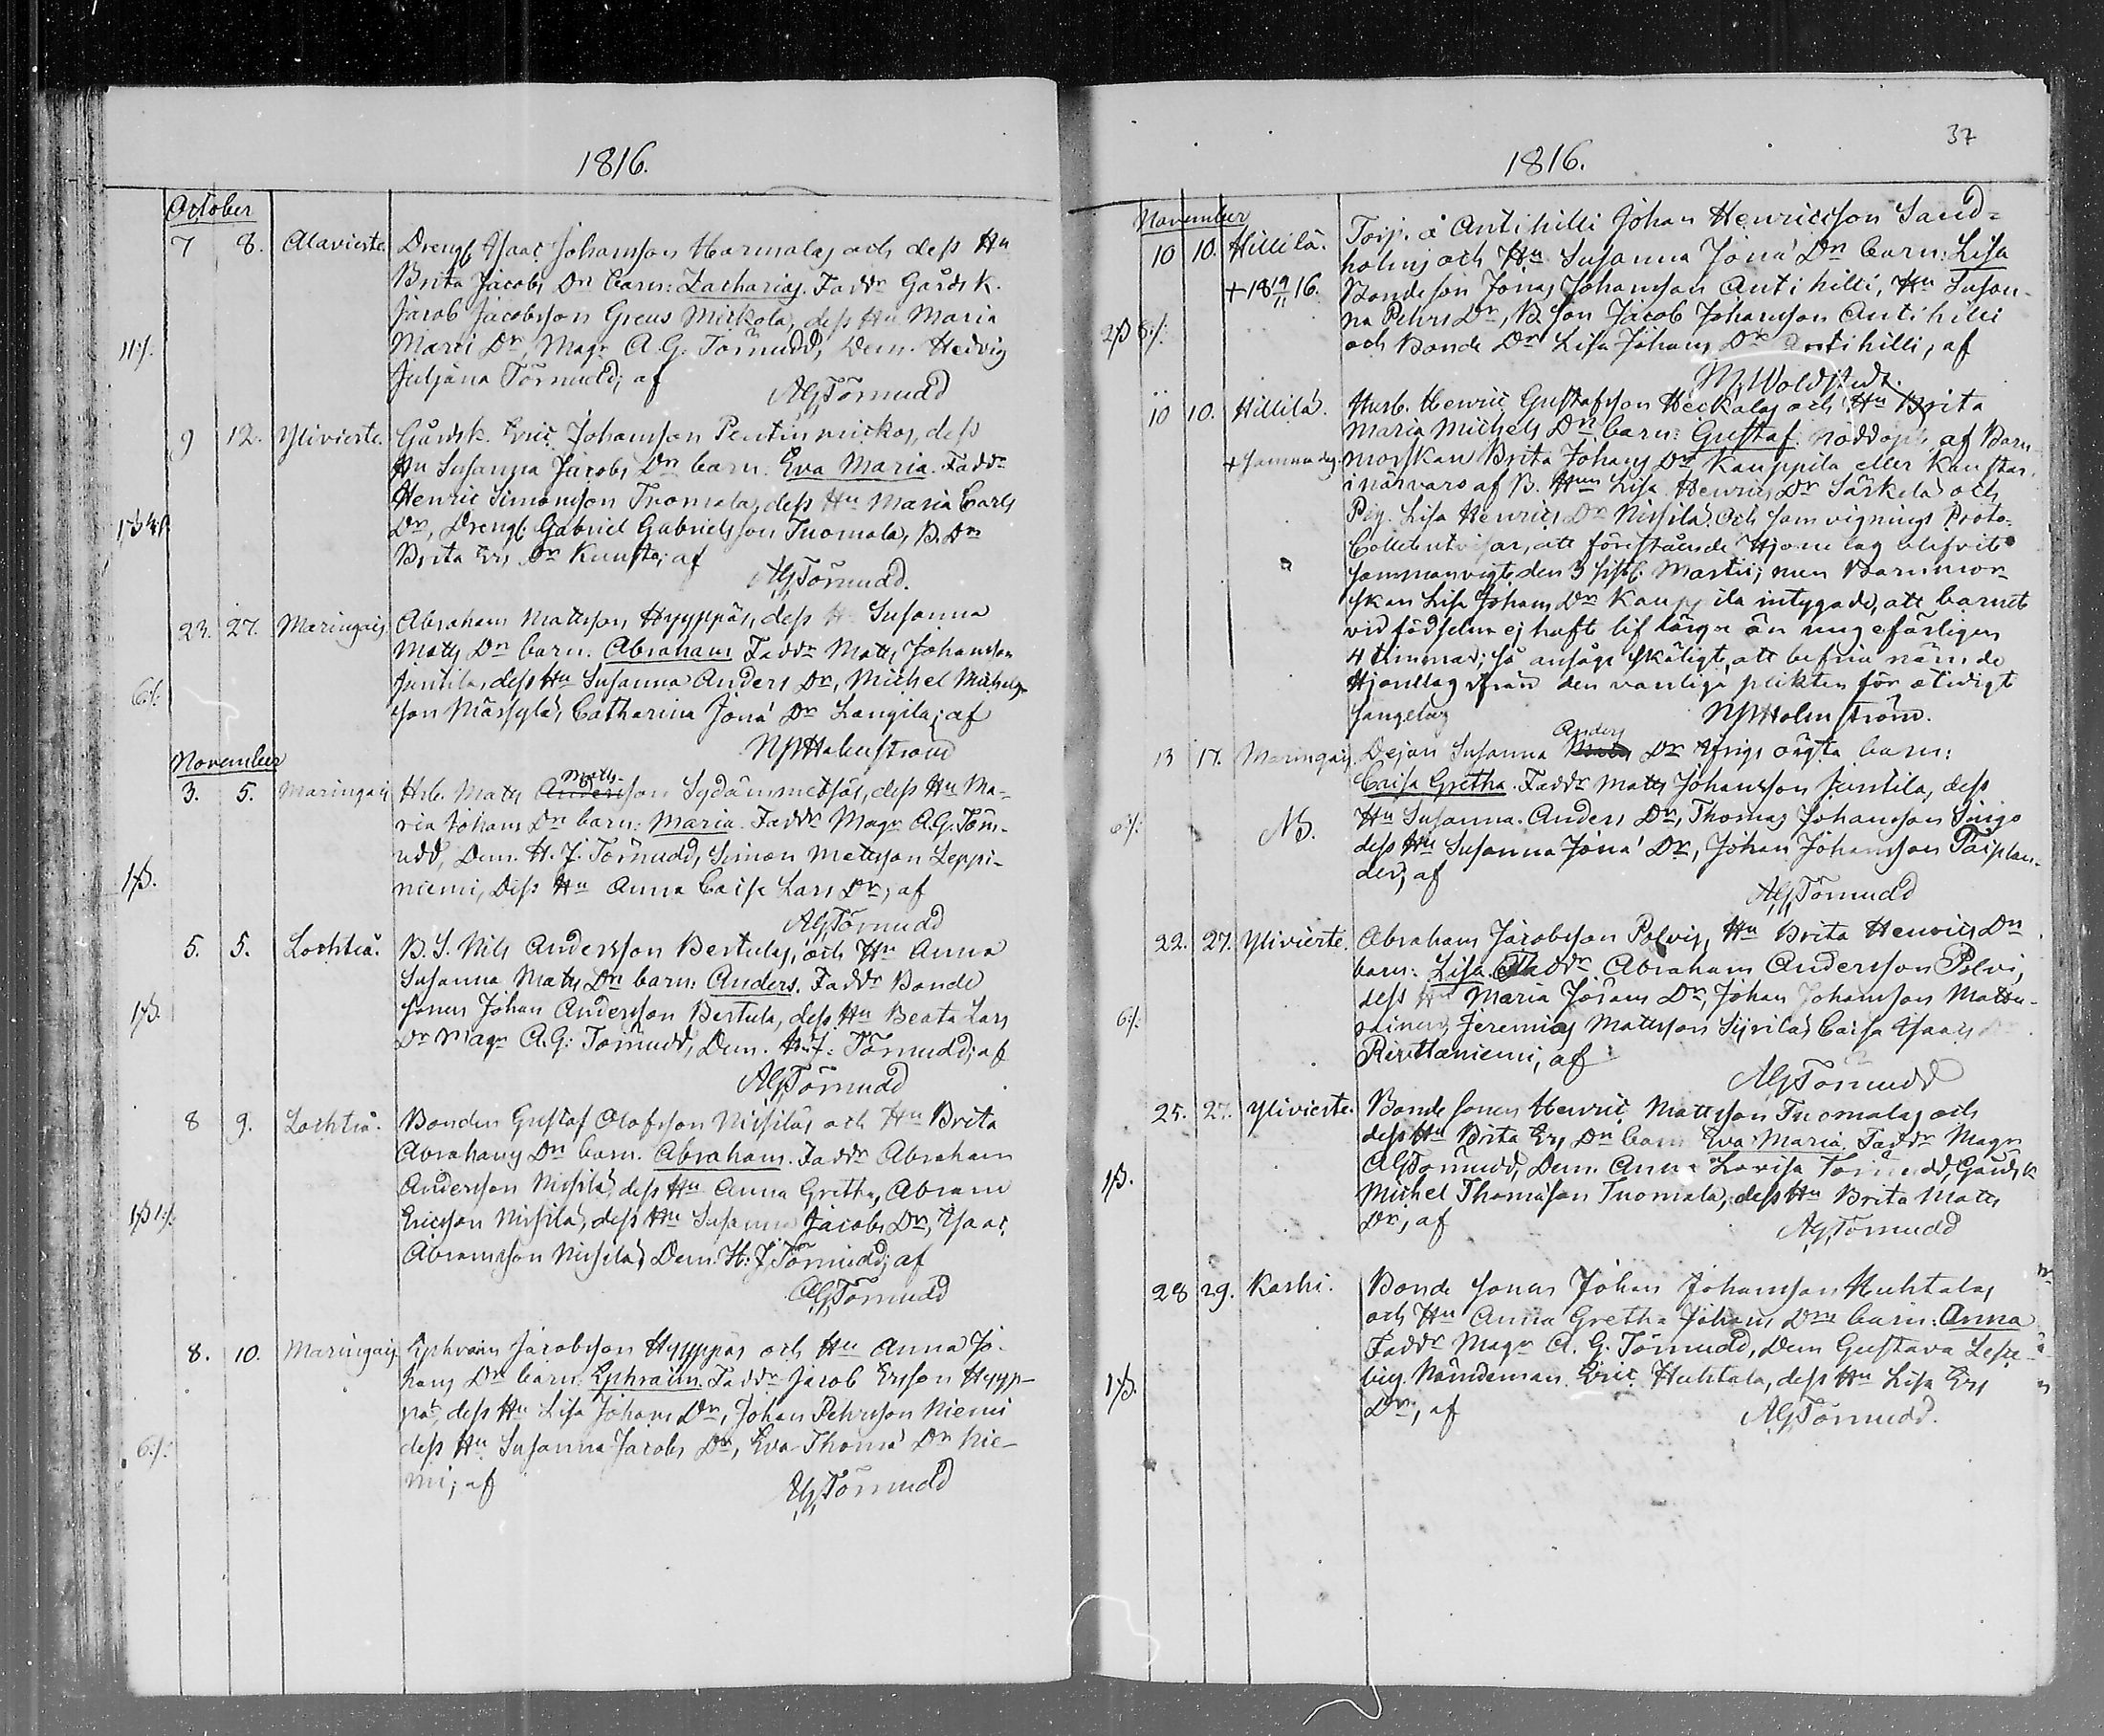 1816.
October
7 8. Alavieste. Drengl Isaac Johansson Marmalas och dess Hu
Brita Jacobs Dr barn: Zacharias. Faddr Gårdsk.
Jacob Jacobsson Greus Mickola, dess Hu Maria
11:/. Matts Dr, Magr A. G. Törnudd, Dem. Hedvig
Juljana Törnudd; af
AGTörnudd
9 12. Ylivieste. Gårdsk. Eric Johansson Penttin mickos, dess
Hu Susanna Jacobs Dr barn. Eva Maria. Faddr
Henric Simonsson Tuomala, dess Hu Maria Carls
Dr, Drengl Gabriel Gabrielsson Tuomala, B. Dr
Brita Ers Dr Kunsto; af
AGTörnudd.
23. 27. Maringais Abraham Mattsson Hyyppäs, dess Hu Susanna
Matts Dr barn. Abraham Faddr Matts Johansson
Juntila, dess Hu Susanna Anders Dr, Michel Michels
6:/. son Mässylä, Catharina Jona' Dr Langila; af
NJHolmström
November
3. 5. Maringais Hrb. Matts Andersson Matts Sydämmetsäs, dess Hu Ma-
ria Johans Dr barn: Maria. Faddr Magr A.G. Törn-
udd, Dem. H. J. Törnudd, Simon Mattsson Leppi-
1β. niemi, Dess Hu Anna Caisa Lars Dr; af
AGTörnudd
5. 5. Lochteå. B. S. Nils Andersson Bertulas, och Hu Anna
Susanna Matts Dr barn: Anders. Faddr Bonde
1β. sonen Johan Andersson Bertula, dess Hu Beata Lars
Dr Magr A.G: Törnudd, Dem. H.J: Törnudd; af
AGTörnudd
8 9. Lochteå. Bonden Gustaf Olofsson Nissiläs och Hu Brita
Abrahams Dr barn. Abraham. Faddr Abraham
Andersson Nissilä, dess Hu Anna Gretha, Abram
1β1:/. Ericsson Nissilä, dess Hu Susanna Jacobs Dr, Isaac
Abramsson Nissilä, Dem. H: J. Törnudd; af
AGTörnudd
8. 10. Maringais Ephraim Jacobsson Hyyppäs och Hu Anna Jo-
hans Dr barn. Ephraim. Faddr Jacob Ersson Hyyp-
pä, dess Hu Lisa Johans Dr, Johan Pehrsson Niemi
6:/: dess Hu Susanna Jacobs Dr, Eva Thoma' Dr Nie-
mi; af
AGTörnudd
37
1816.
November
10 10. Hillilä. Torp. å Antihilli Johan Henricsson Sand-
holms och Hu Susanna Jona' Dr barn: Lisa
+ 18 19/11 16. Bondeson Jonas Johansson Antihilli, Hu Susan-
2β 8:/: na Pehrs Dr, B. son Jacob Johansson Antihilli
och Bonde Dr Lisa Johans Dr Antihilli, af
Woldstedt.
10 10. Hillilä. Husb. Henric Gustafsson Heckalas och Hu Brita
Maria Michels Dr barn: Gustaf. nöddöpt af Barn
+ samma dag. morskan Brita Johans Dr Kauppila eller Kaustar.
i närvaro af B. Hun Lisa Henrics Dr Särkelä och
Pig. Lisa Henrics Dr Nissilä. Och som vignings Proto-
Collet utvisar, att förestående Hjonelag blifvit
sammanvigt den 3 sistl. Martii; men Barnmor-
skan Lisa Johans Dr Kauppila intygade, att barnet
vid födseln ej haft lif längre än ungefärligen
4 timmar; så ansågs skäligt, att befria nämde
Hjonelag ifrån den vanliga plikten för otidigt
sängelag NJHolmström.
13 17. Maringais. Dejan Susanna Matts Anders Dr Yrigs oägta barn:
Caisa Gretha. Faddr Matts Johansson Juntila, dess
6:/: NB. Hu Susanna Anders Dr, Thomas Johansson Sirgo
dess Hu Susanna Jona' Dr, Johan Johansson Taiplan-
der; af
AGTörnudd
22. 27. Ylivieste. Abraham Jacobsson Polvis, Hu Brita Henrics Dr
barn: Lisa. Faddr Abraham Andersson Polvi,
6:/: dess Hu Maria Jörans Dr, Johan Johansson Mattu-
rainen, Jeremias Mattsson Sipilä, Caisa Isaacs Dr
Pirttiniemi; af
AGTörnudd
25. 27. Ylivieste. Bonde sonen Henric Mattsson Tuomalas och
dess Hu Brita Ers Dr barn Eva Maria. Faddr Magr
1β. AGTörnudd, Dem. Anna Lovisa Törnudd, Gårdsk
Michel Thomasson Tuomala, dess Hu Brita Matts
Dr, af
AGTörnudd
28 29. Kaski. Bonde sonen Johan Johansson Huhtalas
och Hu Anna Gretha Johans Dr barn: Anna
Faddr Magr A. G. Törnudd, Dem Gustava
1β. Nämdeman Eric Huhtala, dess Hu Lisa Ers
Dr, af
AGTörnudd.